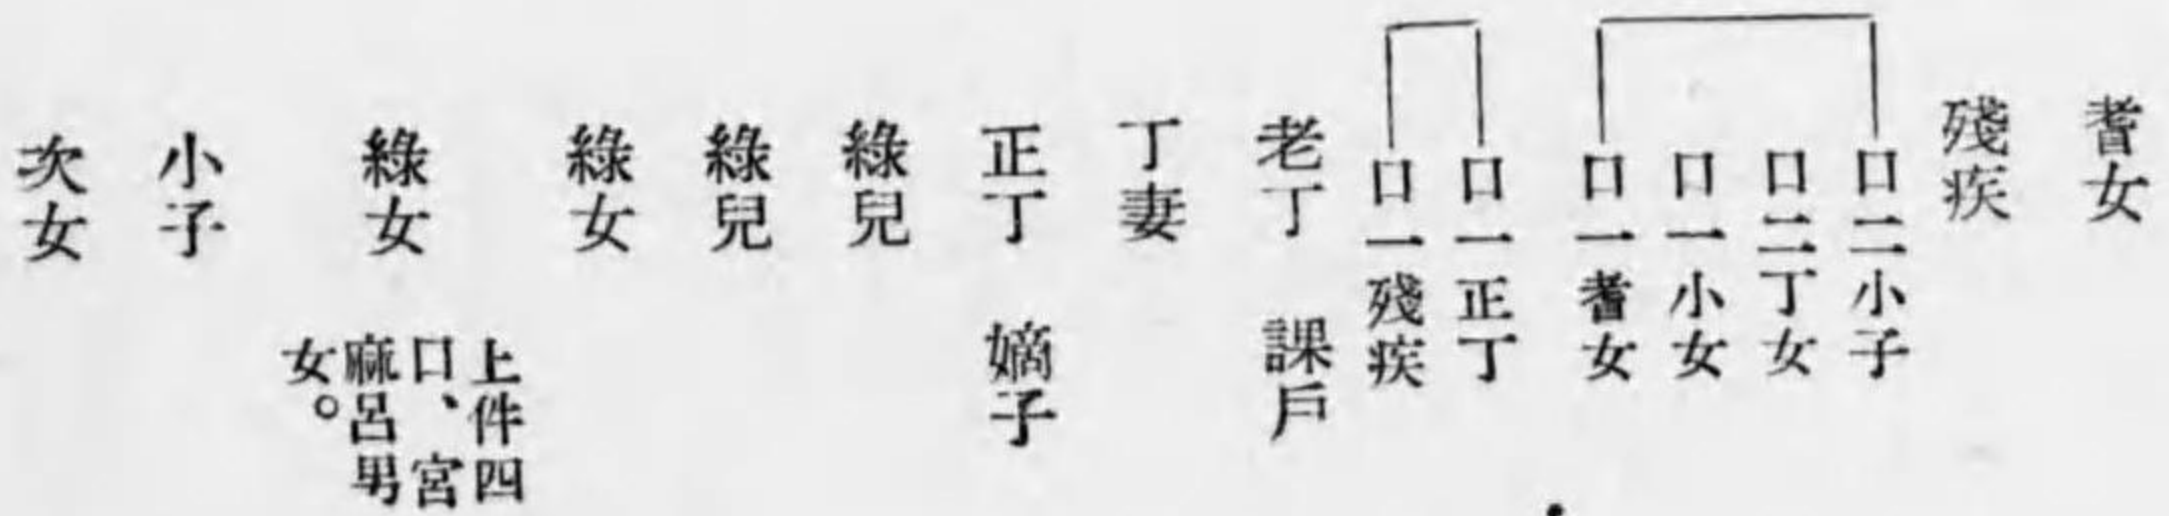 耆女
殘疾
口二小子
口二丁女
口一小女
口一耆女
口一正丁
口一殘疾
老丁 課戶
丁妻
正丁 嫡子
綠兒
綠兒
綠女
綠女 上件四
口、宮
麻呂男
女。
小子
次女